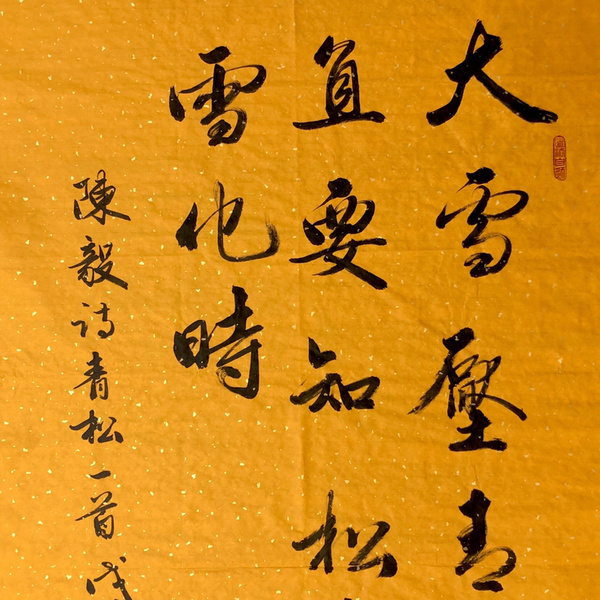 大雪壓青
直要知松
雪化時
陳毅詩青松一首戊